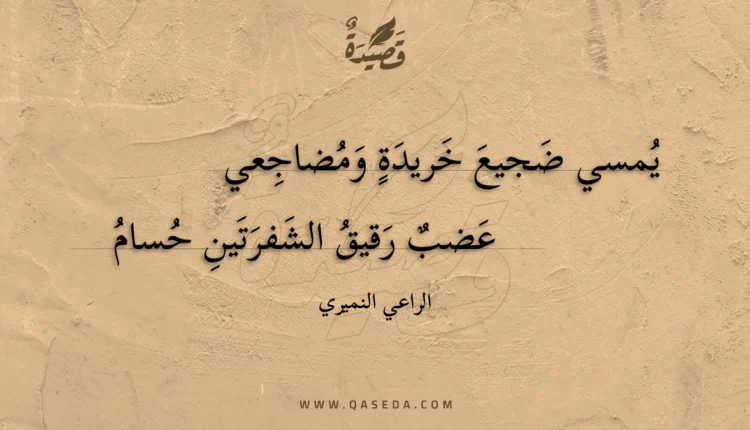 قَصِيْدَةٌ
يُمسي ضَجيعَ خَريدَةٍ وَمُضاجِعي
عَضبٌ رَقيقُ الشَفرَتَينِ حُسامُ
الراعي النميري
WWW.QASEDA.COM